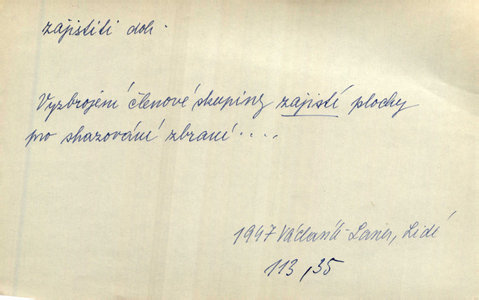 zajistiti dok.
Vyzbrojení členové skupiny zajistí plochy
pro shazování zbraní....
1947 Václavík-Laner, Lidé
113,35